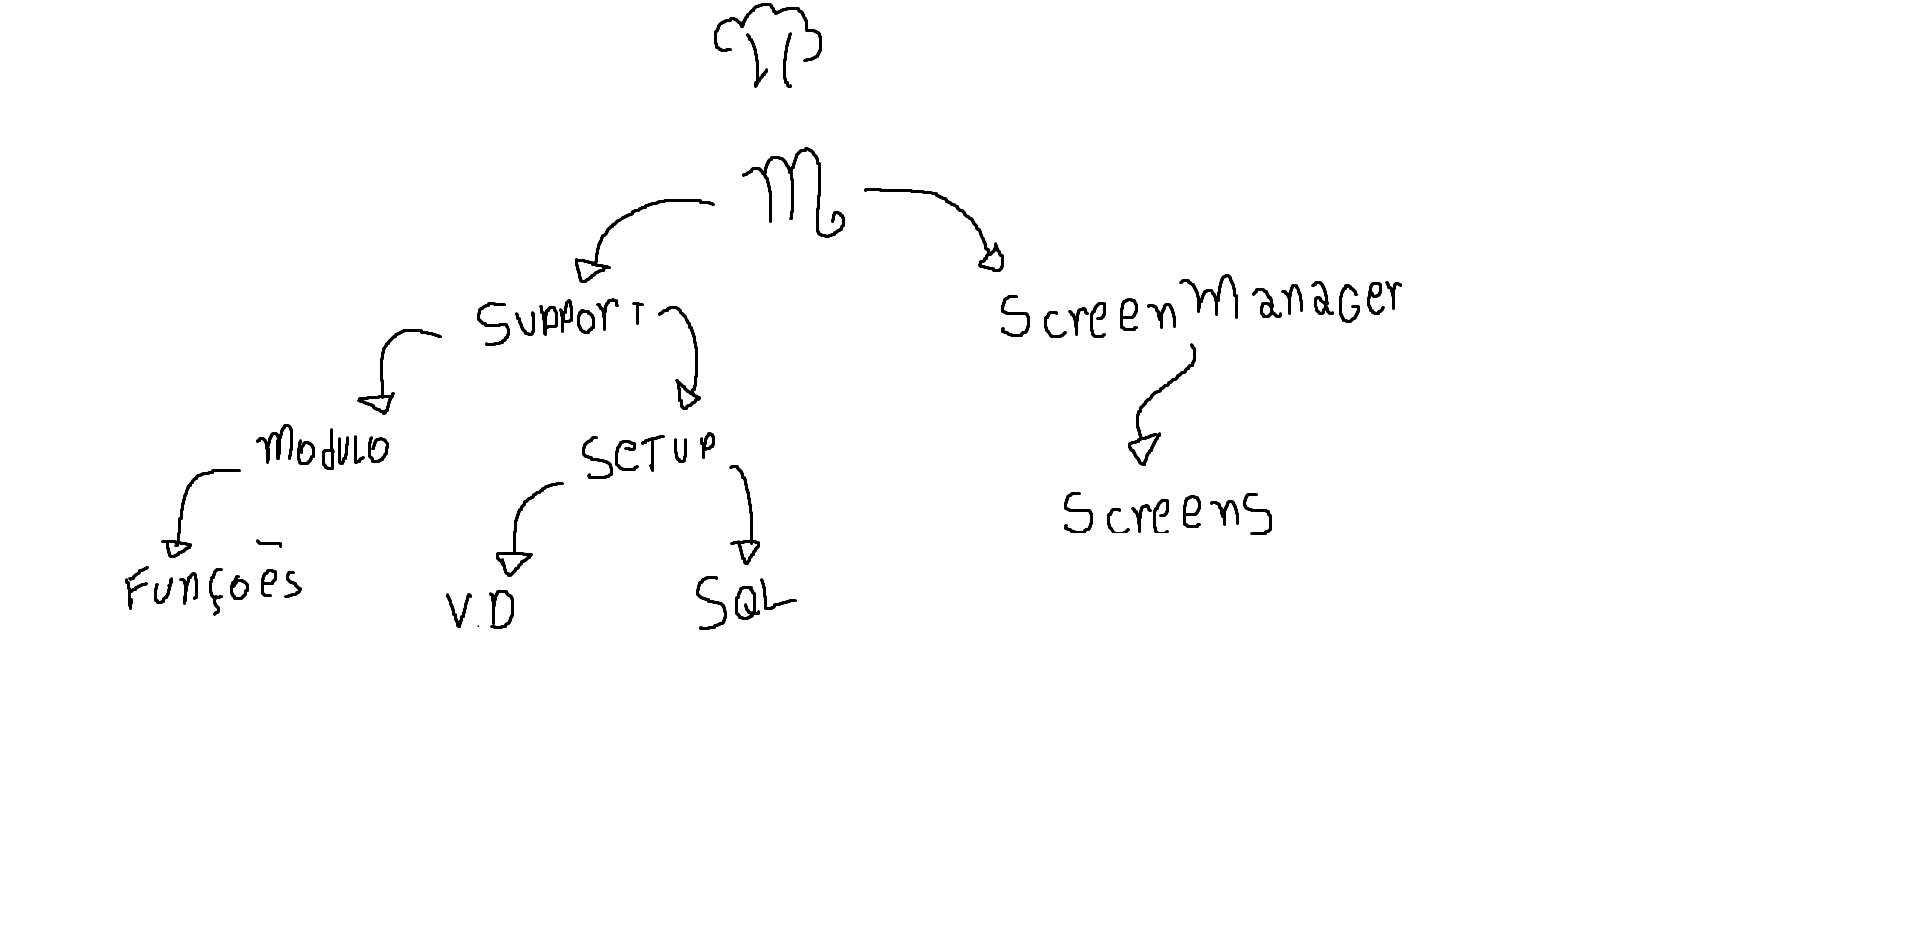 m
Support
ScreenManager
modulo
SETUP
Screens
Funçoēs
V.D
SQL